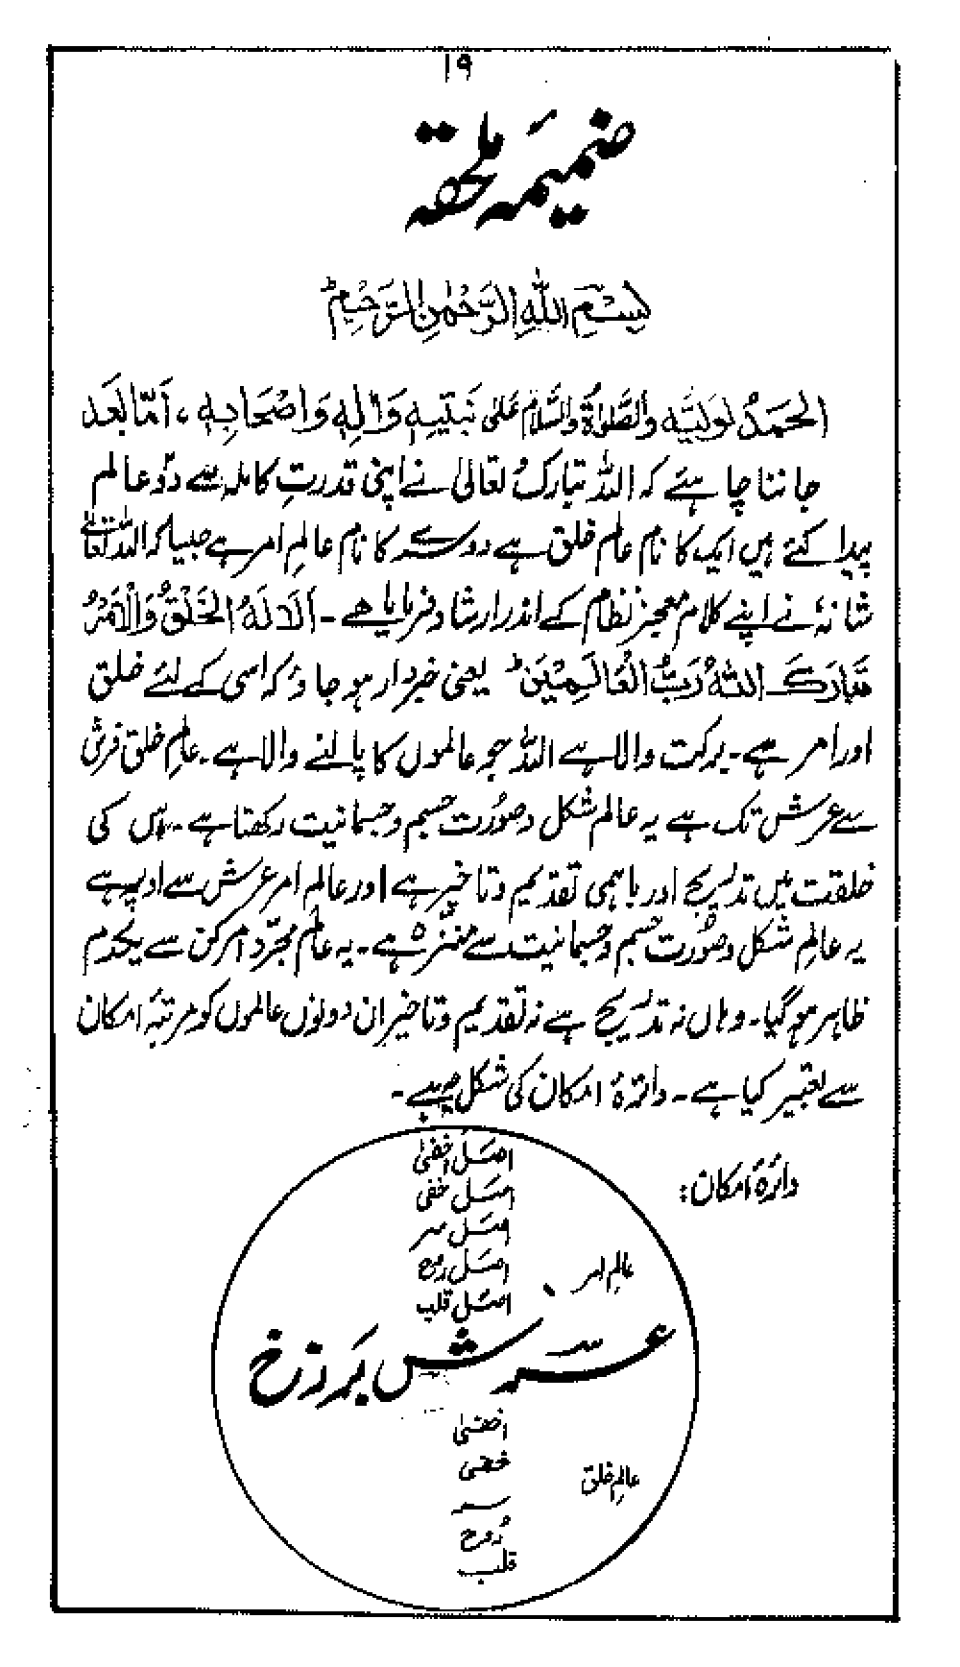 ۱۹
ضمیمَہ ملحقہ
بِسْمِ اللهِ الرَّحْمٰنِ الرَّحِیْمِ ؕ
الحَمدُ لوَلیِّہٖ والصَّلٰوۃُ والسَّلامُ عَلٰی نَبیِّہٖ وَاٰلِہٖ وَاصْحَابِہٖ ، اَمّا بَعَد
جاننا چاہئے کہ اللہ تبارکُ تعالیٰ نے اپنی قدرتِ کاملہ سے دو عالم
پیدا کئے ہیں ایک کا نام عالم خلق ہے دوسرے کا نام عالمِ امر ہے جیسا کہ اللہ تعالٰے
شانہٗ نے اپنے کلام معجز نظام کے اندر ارشاد فرمایا ہے ۔ اَلَا لَهُ الْخَلْقُ وَالْاَمْرُ
تَبَارَکَ اللهُ رَبُّ الْعَالَمِیْنَ ؕ یعنی خبردار ہو جاؤ کہ اسی کے لئے خلق
اور امر ہے ۔ برکت والا ہے اللہ جو عالموں کا پالنے والا ہے ۔ عالمِ خلق فرش
سے عرش تک ہے یہ عالم شکل و صُورت جسم و جسمانیت رکھتا ہے ۔ اس کی
خلقت میں تدریج اور باہمی تقدیم و تاخیر ہے اور عالمِ امر عرش سے اوپر ہے
یہ عالمِ شکل و صُورت جسم و جسمانیت سے منزہ ہے ۔ یہ عالم مجرّد امر کن سے یکدم
ظاہر ہو گیا ۔ وہاں نہ تدریج ہے نہ تقدیم و تاخیر ان دونوں عالموں کو مرتبۂ امکان
سے تعبیر کیا ہے ۔ دائرۂ امکان کی شکل یہ ہے ۔
دائرۂ امکان :
اصل اخفیٰ
اصل خفی
اصل سر
اصل روح
اصل قلب
عالمِ امر
عرش برزخ
اخفیٰ
خفی
سر
رُوح
قلب
عالمِ خلق